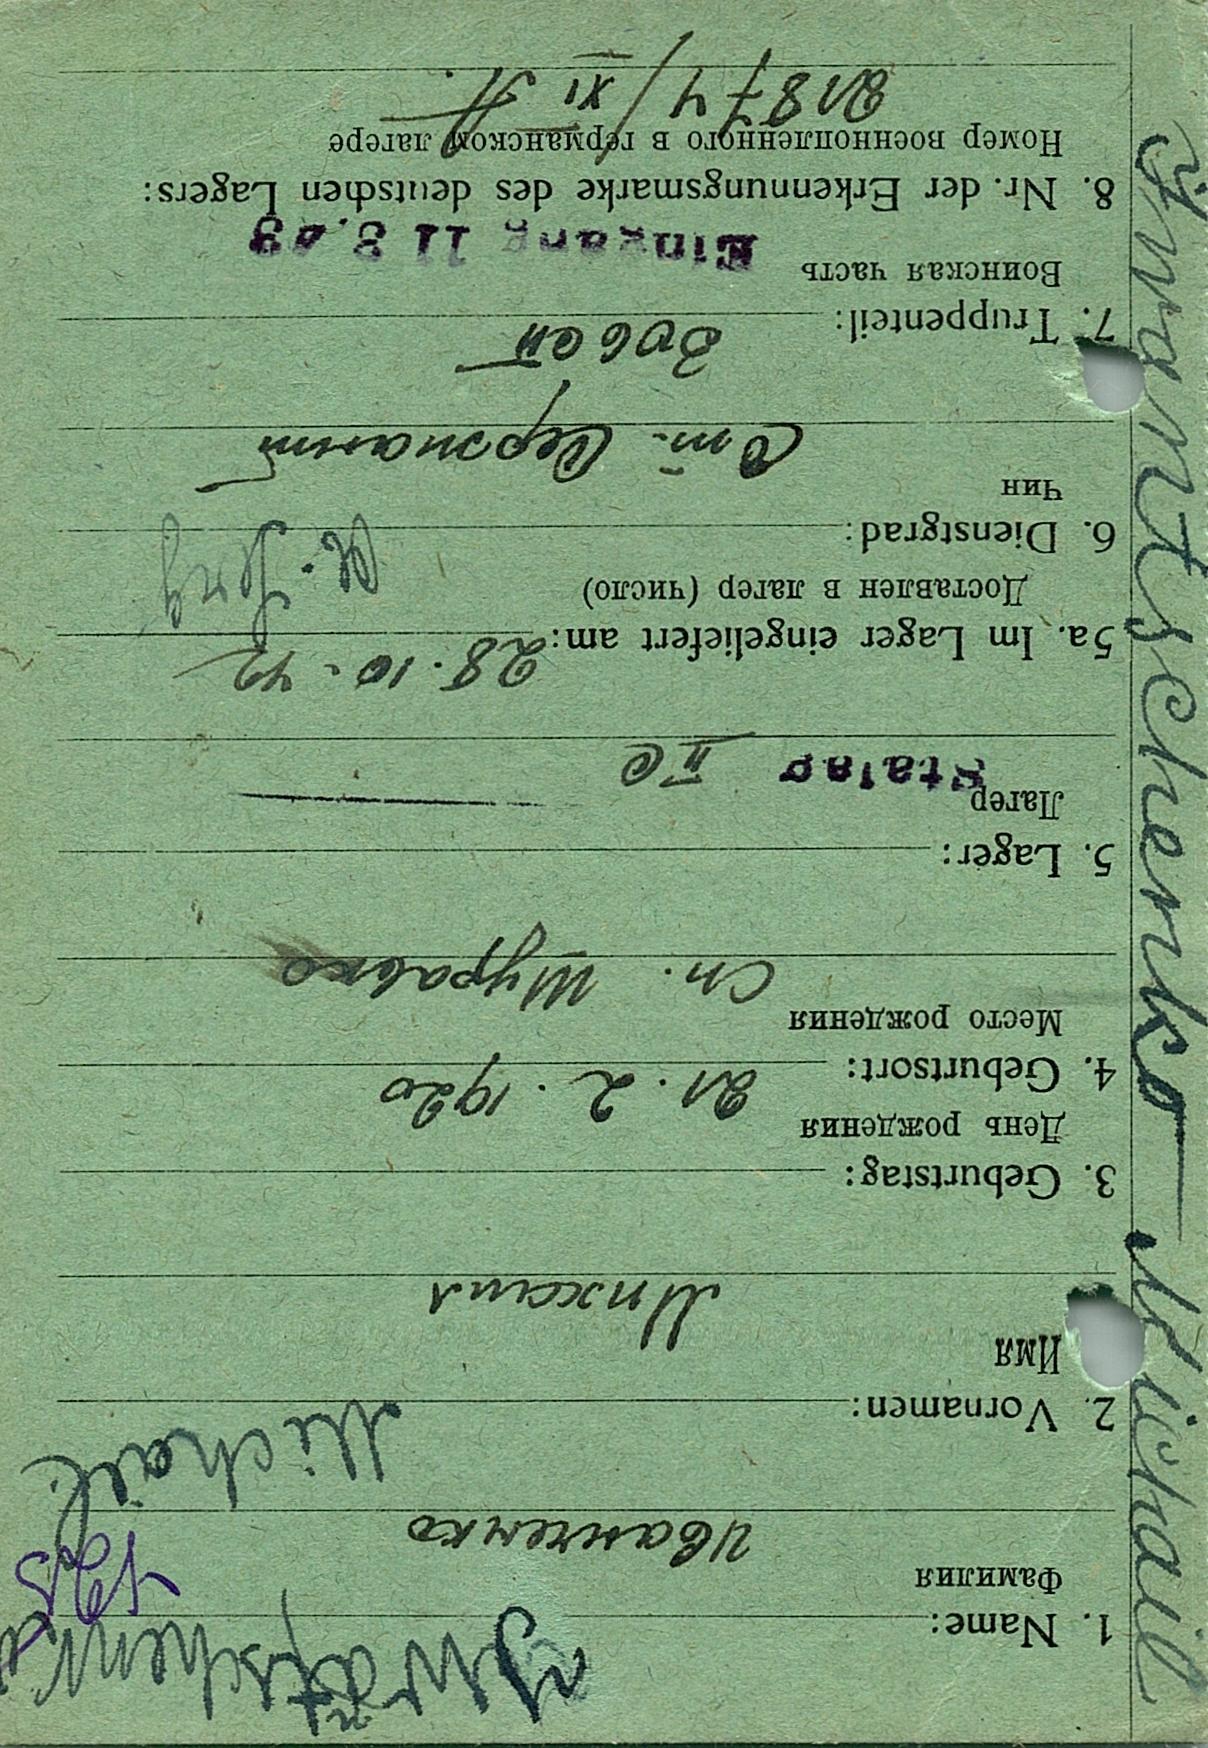 Iwantschenko
1. Name:
Фамилия
Иванченко
Michail.
2. Vornamen:
Имя
Михаил
3. Geburtstag:
День рождения
21. 2. 1920
4. Geburtsort:
Место рождения
Сп. Шуравко
5. Lager:
Лагер
Stalag II C
5a. Im Lager eingeliefert am: 28. 10. 42
Доставлен в лагер (число)
6. Dienstgrad:
Чин
Ст. Сержант
7. Truppenteil: 30б сп
Воинская часть
Eingang 11 3. 43
8. Nr. der Erkennungsmarke des deutschen Lagers:
Номер военнопленного в германском лагере
21874 / XI A.
Iwantschenko — Michail